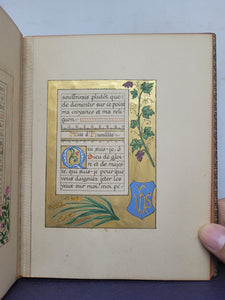 souffrirais plutôt que
de démentir sur ce point
ma croyance et ma reli
gion.
Acte d'Humilité.
Qui suis-je, ô
Dieu de gloi-
re et de majes-
té, qui suis-je pour que
vous daigniez jeter les
yeux sur moi? moi pé-